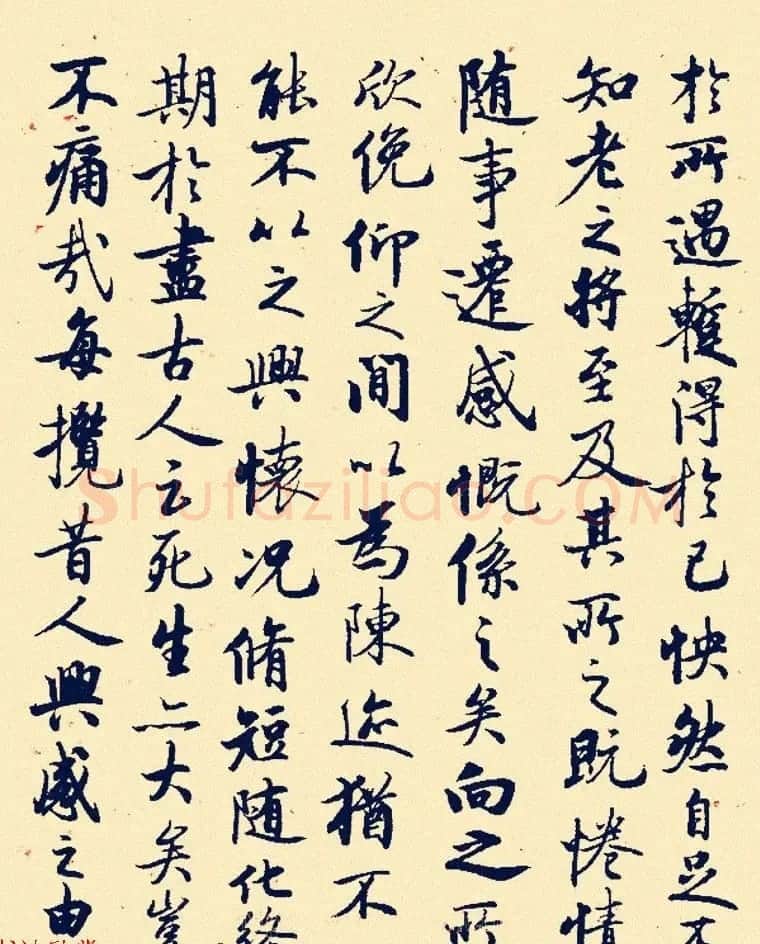 於所遇暫得於己怏然自足不
知老之將至及其所之既惓情
随事遷感慨係之矣向之所
欣俛仰之閒以為陳迹猶不
能不以之興懷况脩短随化終
期於盡古人云死生亦大矣豈
不痛哉每攬昔人興感之由
Shufaziliao.COM